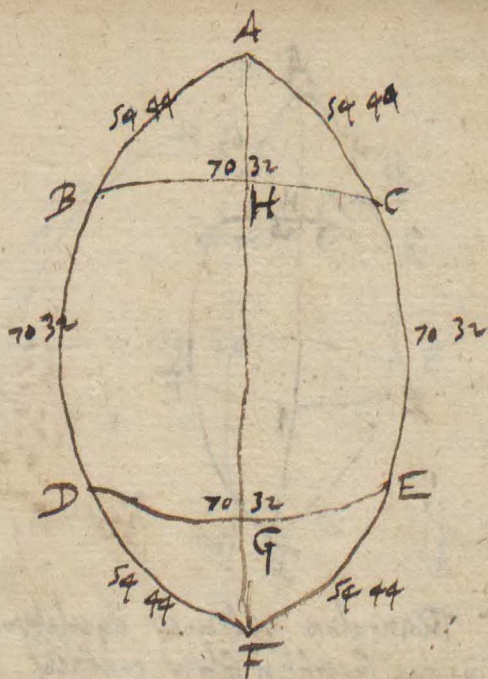 A
54 44 54 44
70 32
B H C
70 32 70 32
D 70 32 E
G
54 44 54 44
F